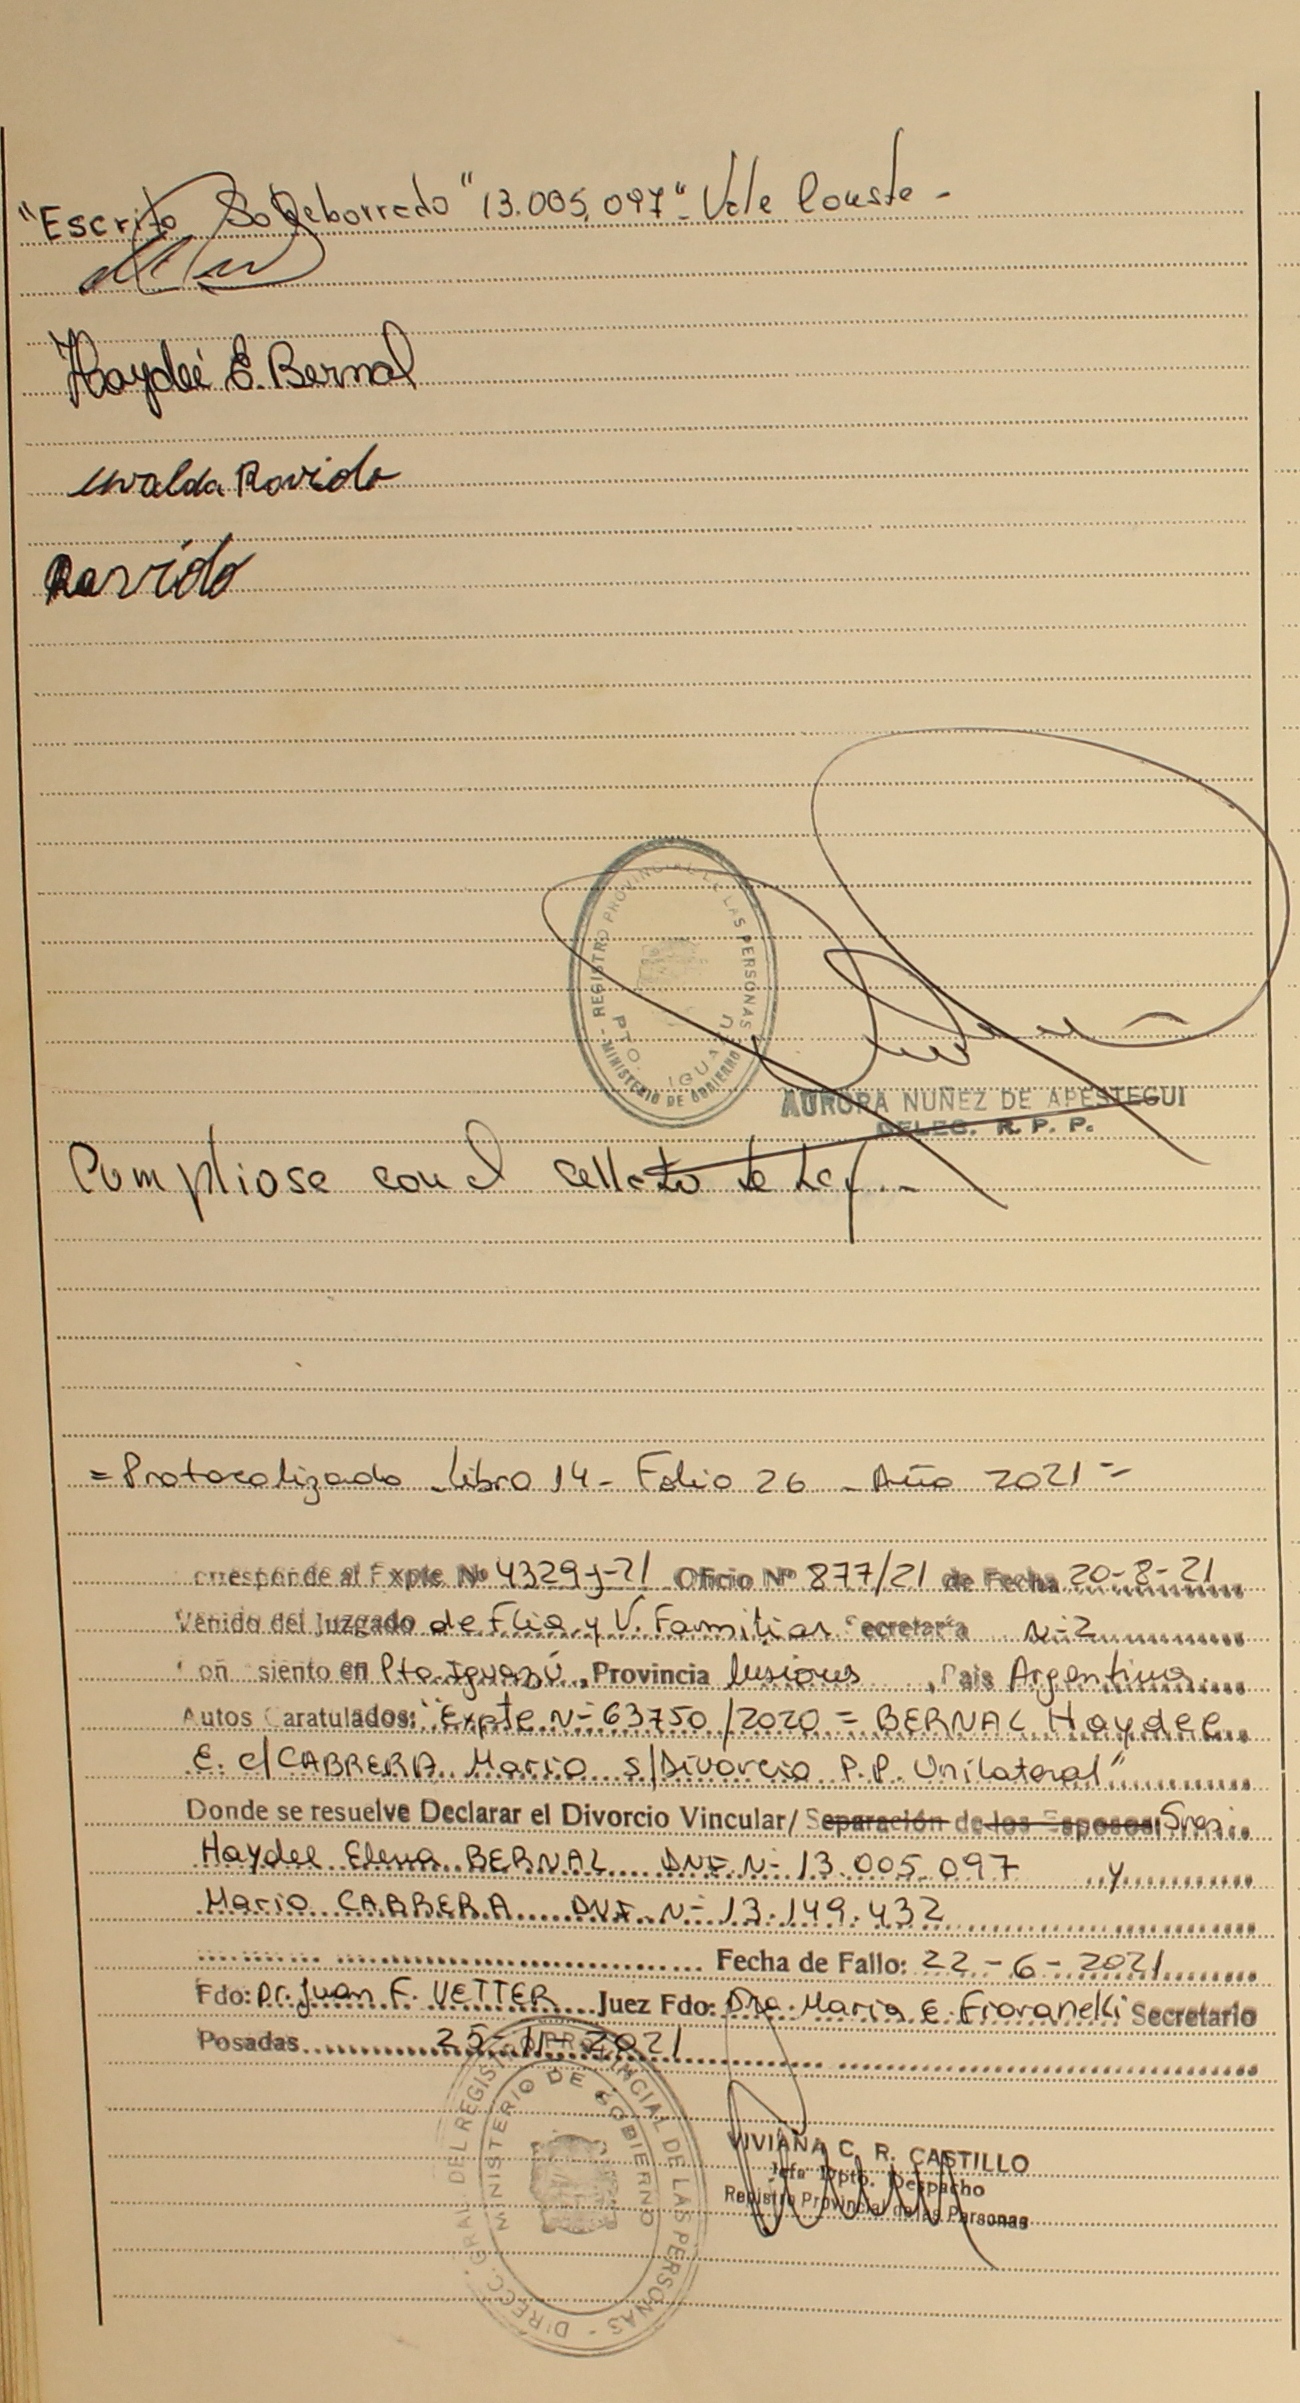 "Escrito Sobreborrado "13.005.097" Vale Conste -
Haydeé E. Bernal
Ravido
Ravido
REGISTRO PROVINCIAL DE LAS PERSONAS - MINISTERIO DE GOBIERNO -
PTO. IGUAZU
AURORA NUÑEZ DE APESTEGUI
DELEG. R. P. P.
Cumpliose con el sellado de Ley.-
= Protocolizado - Libro 14 - Folio 26 - Año 2021 =-
rresponde al Expte Nº 4329-J-21 Oficio Nº 877/21 de Fecha 20-8-21
Venido del Juzgado de Flia y V. Familiar Secretaría Nº 2
on siento en Pto Iguazú, Provincia Misiones, País Argentina.
Autos Caratulados: "Expte Nº 63750/2020 = BERNAL Haydee
E. c/ CABRERA Mario s/ Divorcio P.P. Unilateral"
Donde se resuelve Declarar el Divorcio Vincular/ Separación de los Esposos: Sres.
Haydee Elena BERNAL DNI Nº 13.005.097 y
Mario CABRERA DNI Nº 13.149.432
Fecha de Fallo: 22-6-2021
Fdo: Dr. Juan F. VETTER Juez Fdo: Dra. Maria E. Fioranelli Secretario
Posadas 25-11-2021
DIRECC. GRAL. DEL REGISTRO PROVINCIAL DE LAS PERSONAS -
MINISTERIO DE GOBIERNO
VIVIANA C. R. CASTILLO
Jefa Dpto. Despacho
Registro Provincial de las Personas